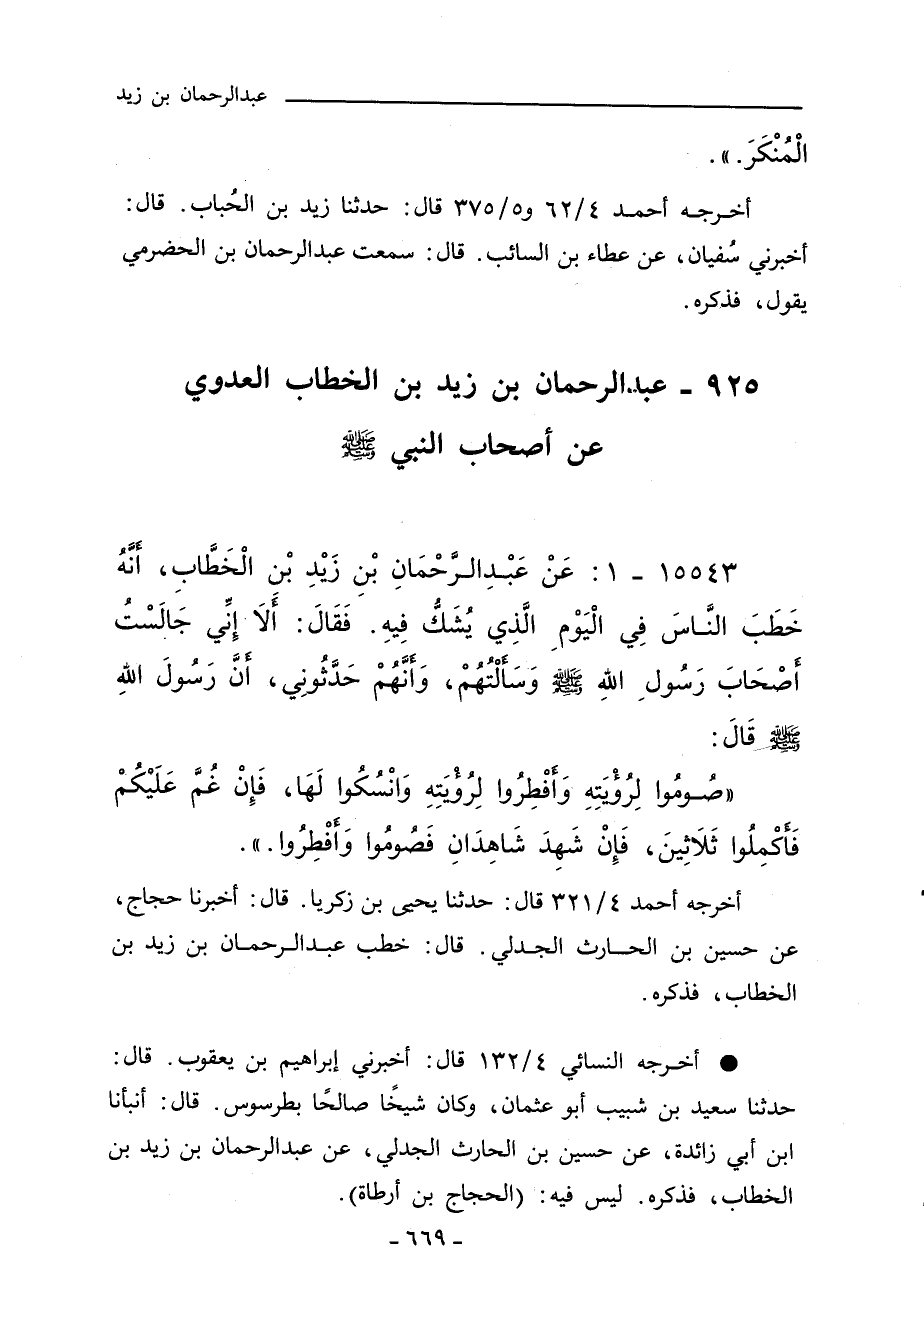 عبدالرحمان بن زيد
الْمُنْكَرَ.».
أخرجه أحمد ٦٢/٤ و٣٧٥/٥ قال: حدثنا زيد بن الحُباب. قال:
أخبرني سُفيان، عن عطاء بن السائب. قال: سمعت عبدالرحمان بن الحضرمي
يقول، فذكره.
٩٢٥ - عبدالرحمان بن زيد بن الخطاب العدوي
عن أصحاب النبي ﷺ
١٥٥٤٣ - ١: عَنْ عَبْدِالرَّحْمَانِ بْنِ زَيْدِ بْنِ الْخَطَّابِ، أَنَّهُ
خَطَبَ النَّاسَ فِي الْيَوْمِ الَّذِي يُشَكُّ فِيهِ. فَقَالَ: أَلَا إِنِّي جَالَسْتُ
أَصْحَابَ رَسُولِ اللهِ ﷺ وَسَأَلْتُهُمْ، وَأَنَّهُمْ حَدَّثُونِي، أَنَّ رَسُولَ اللهِ
ﷺ قَالَ:
«صُومُوا لِرُؤْيَتِهِ وَأَفْطِرُوا لِرُؤْيَتِهِ وَانْسُكُوا لَهَا، فَإِنْ غُمَّ عَلَيْكُمْ
فَأَكْمِلُوا ثَلَاثِينَ، فَإِنْ شَهِدَ شَاهِدَانِ فَصُومُوا وَأَفْطِرُوا.».
أخرجه أحمد ٣٢١/٤ قال: حدثنا يحيى بن زكريا. قال: أخبرنا حجاج،
عن حسين بن الحارث الجدلي. قال: خطب عبدالرحمان بن زيد بن
الخطاب، فذكره.
● أخرجه النسائي ١٣٢/٤ قال: أخبرني إبراهيم بن يعقوب. قال:
حدثنا سعيد بن شبيب أبو عثمان، وكان شيخًا صالحًا بطرسوس. قال: أنبأنا
ابن أبي زائدة، عن حسين بن الحارث الجدلي، عن عبدالرحمان بن زيد بن
الخطاب، فذكره. ليس فيه: (الحجاج بن أرطاة).
- ٦٦٩ -